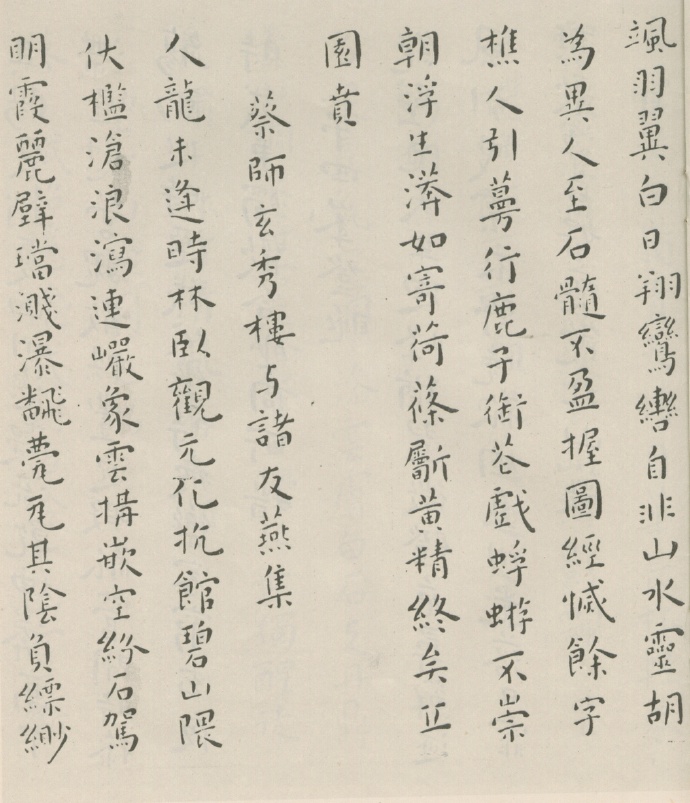 颯羽翼白日翔鸞轡自非山水靈胡
為異人至石髓不盈握圖經惐餘字
樵人引蕚行鹿子銜花戲蜉蝣不崇
朝浮生漭如寄荷蓧斸黄精終矣丘
園賁
蔡師玄秀樓与諸友燕集
人龍未逢時林臥觀元化抗館碧山隈
伏檻滄浪瀉連巘象雲搆嵌空紛石駕
明霞麗壁璫濺瀑飜甍瓦其陰負縹緲